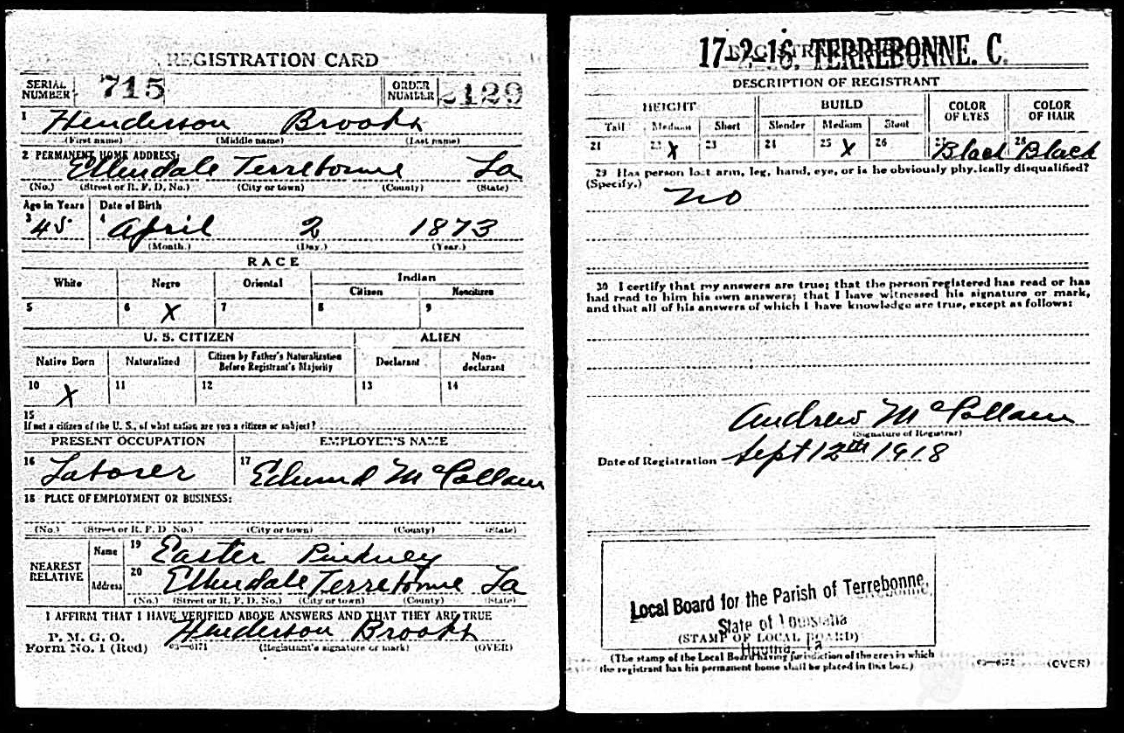 REGISTRATION CARD
SERIAL NUMBER 715 ORDER NUMBER 2129
1 Henderson Brooks
(First name) (Middle name) (Last name)
2 PERMANENT HOME ADDRESS:
Ellendale Terrebonne La
(No.) (Street or R. F. D. No.) (City or town) (County) (State)
Age in Years Date of Birth
3 45 4 April 2 1873
(Month.) (Day.) (Year.)
RACE
White Negro Oriental Indian
Citizen Noncitizen
5 6 X 7 8 9
U. S. CITIZEN ALIEN
Native Born Naturalized Citizen by Father's Naturalization Before Registrant's Majority Declarant Non-declarant
10 X 11 12 13 14
15
If not a citizen of the U. S., of what nation are you a citizen or subject?
PRESENT OCCUPATION EMPLOYER'S NAME
16 Laborer 17 Edmund McCollam
18 PLACE OF EMPLOYMENT OR BUSINESS:
(No.) (Street or R. F. D. No.) (City or town) (County) (State)
NEAREST RELATIVE Name 19 Easter Pinkney
Address 20 Ellendale Terrebonne La
(No.) (Street or R. F. D. No.) (City or town) (County) (State)
I AFFIRM THAT I HAVE VERIFIED ABOVE ANSWERS AND THAT THEY ARE TRUE
P. M. G. O.
Form No. 1 (Red) 03—6171 Henderson Brooks
(Registrant's signature or mark) (OVER)
17-2-16. TERREBONNE. C.
DESCRIPTION OF REGISTRANT
HEIGHT BUILD COLOR OF EYES COLOR OF HAIR
Tall Medium Short Slender Medium Stout
21 22 X 23 24 25 X 26 27 Black 28 Black
29 Has person lost arm, leg, hand, eye, or is he obviously physically disqualified?
(Specify.) no
30 I certify that my answers are true; that the person registered has read or has
had read to him his own answers; that I have witnessed his signature or mark,
and that all of his answers of which I have knowledge are true, except as follows:
Andrew McCollam
(Signature of Registrar)
Date of Registration Sept 12th 1918
Local Board for the Parish of Terrebonne,
State of Louisiana
(STAMP OF LOCAL BOARD)
Houma, La
(The stamp of the Local Board having jurisdiction of the area in which
the registrant has his permanent home shall be placed in this box.) 03—6171 (OVER)